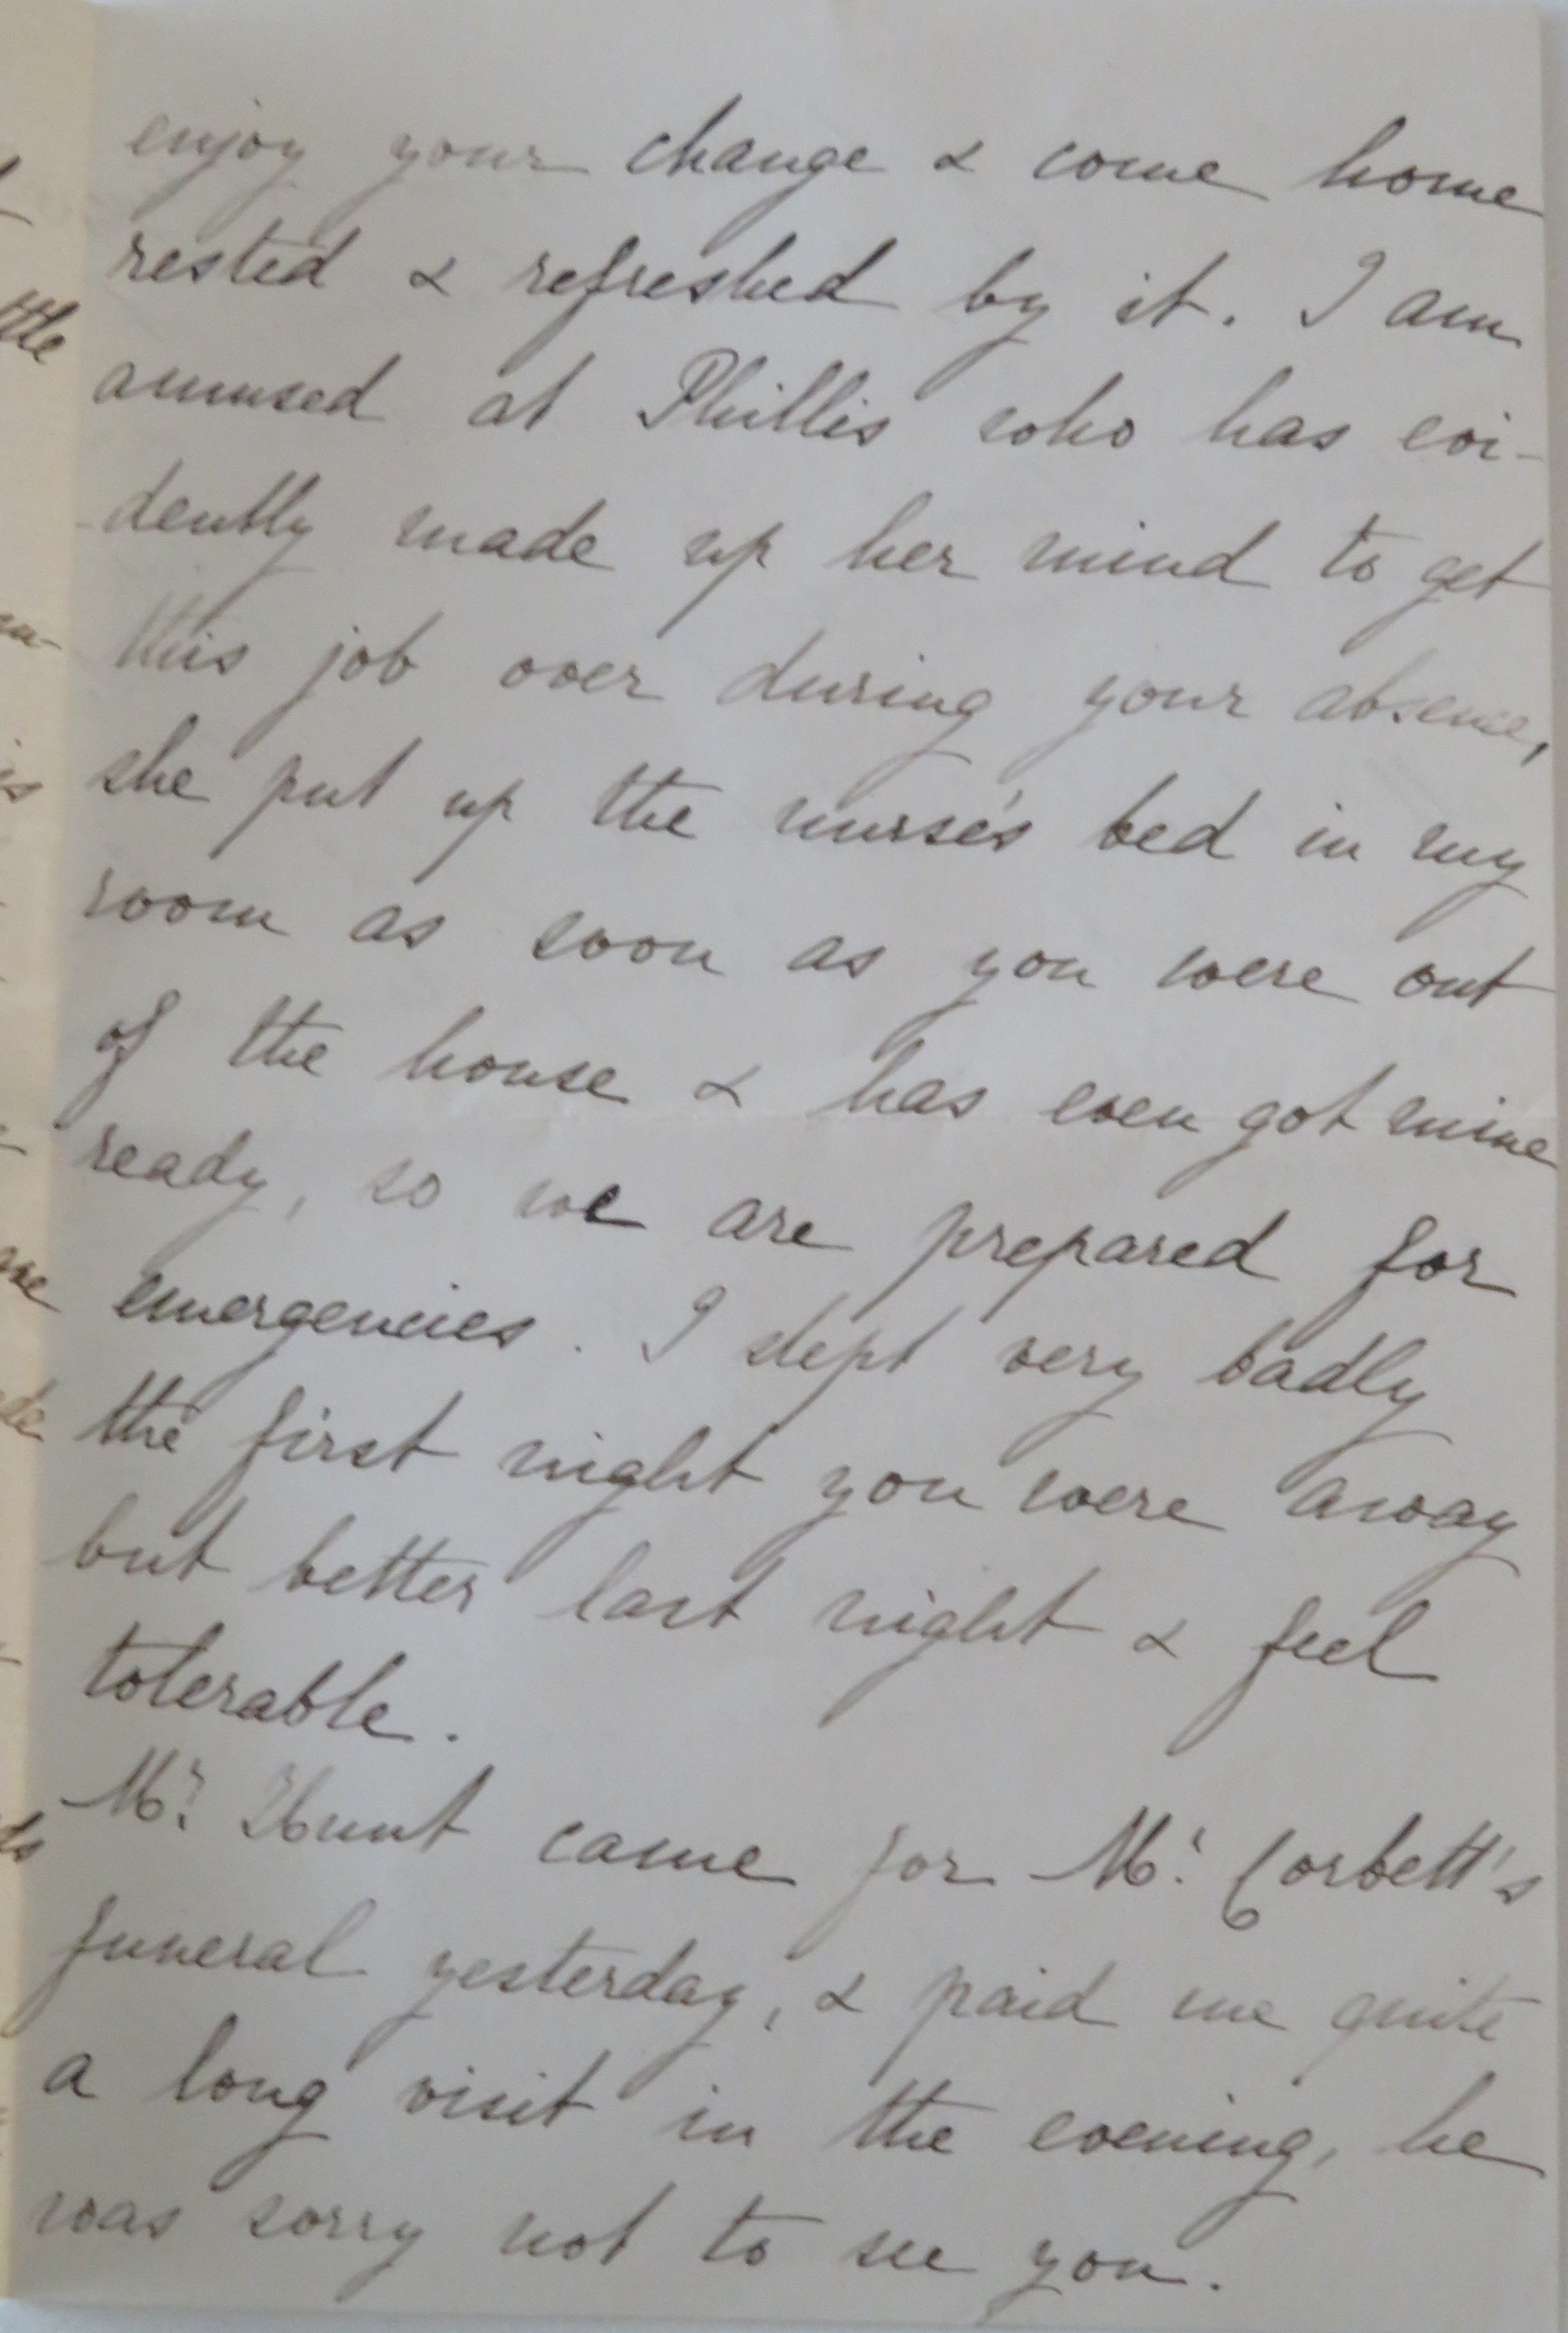 enjoy your change & come home
rested & refreshed by it. I am
amused at Phillis who has evi-
-dently made up her mind to get
this job over during your absence,
she put up the nurse's bed in my
room as soon as you were out
of the house & has even got mine
ready, so we are prepared for
emergencies. I slept very badly
the first night you were away
but better last night & feel
tolerable.
Mr. Hunt came for Mr. Corbett's
funeral yesterday, & paid me quite
a long visit in the evening, he
was sorry not to see you.